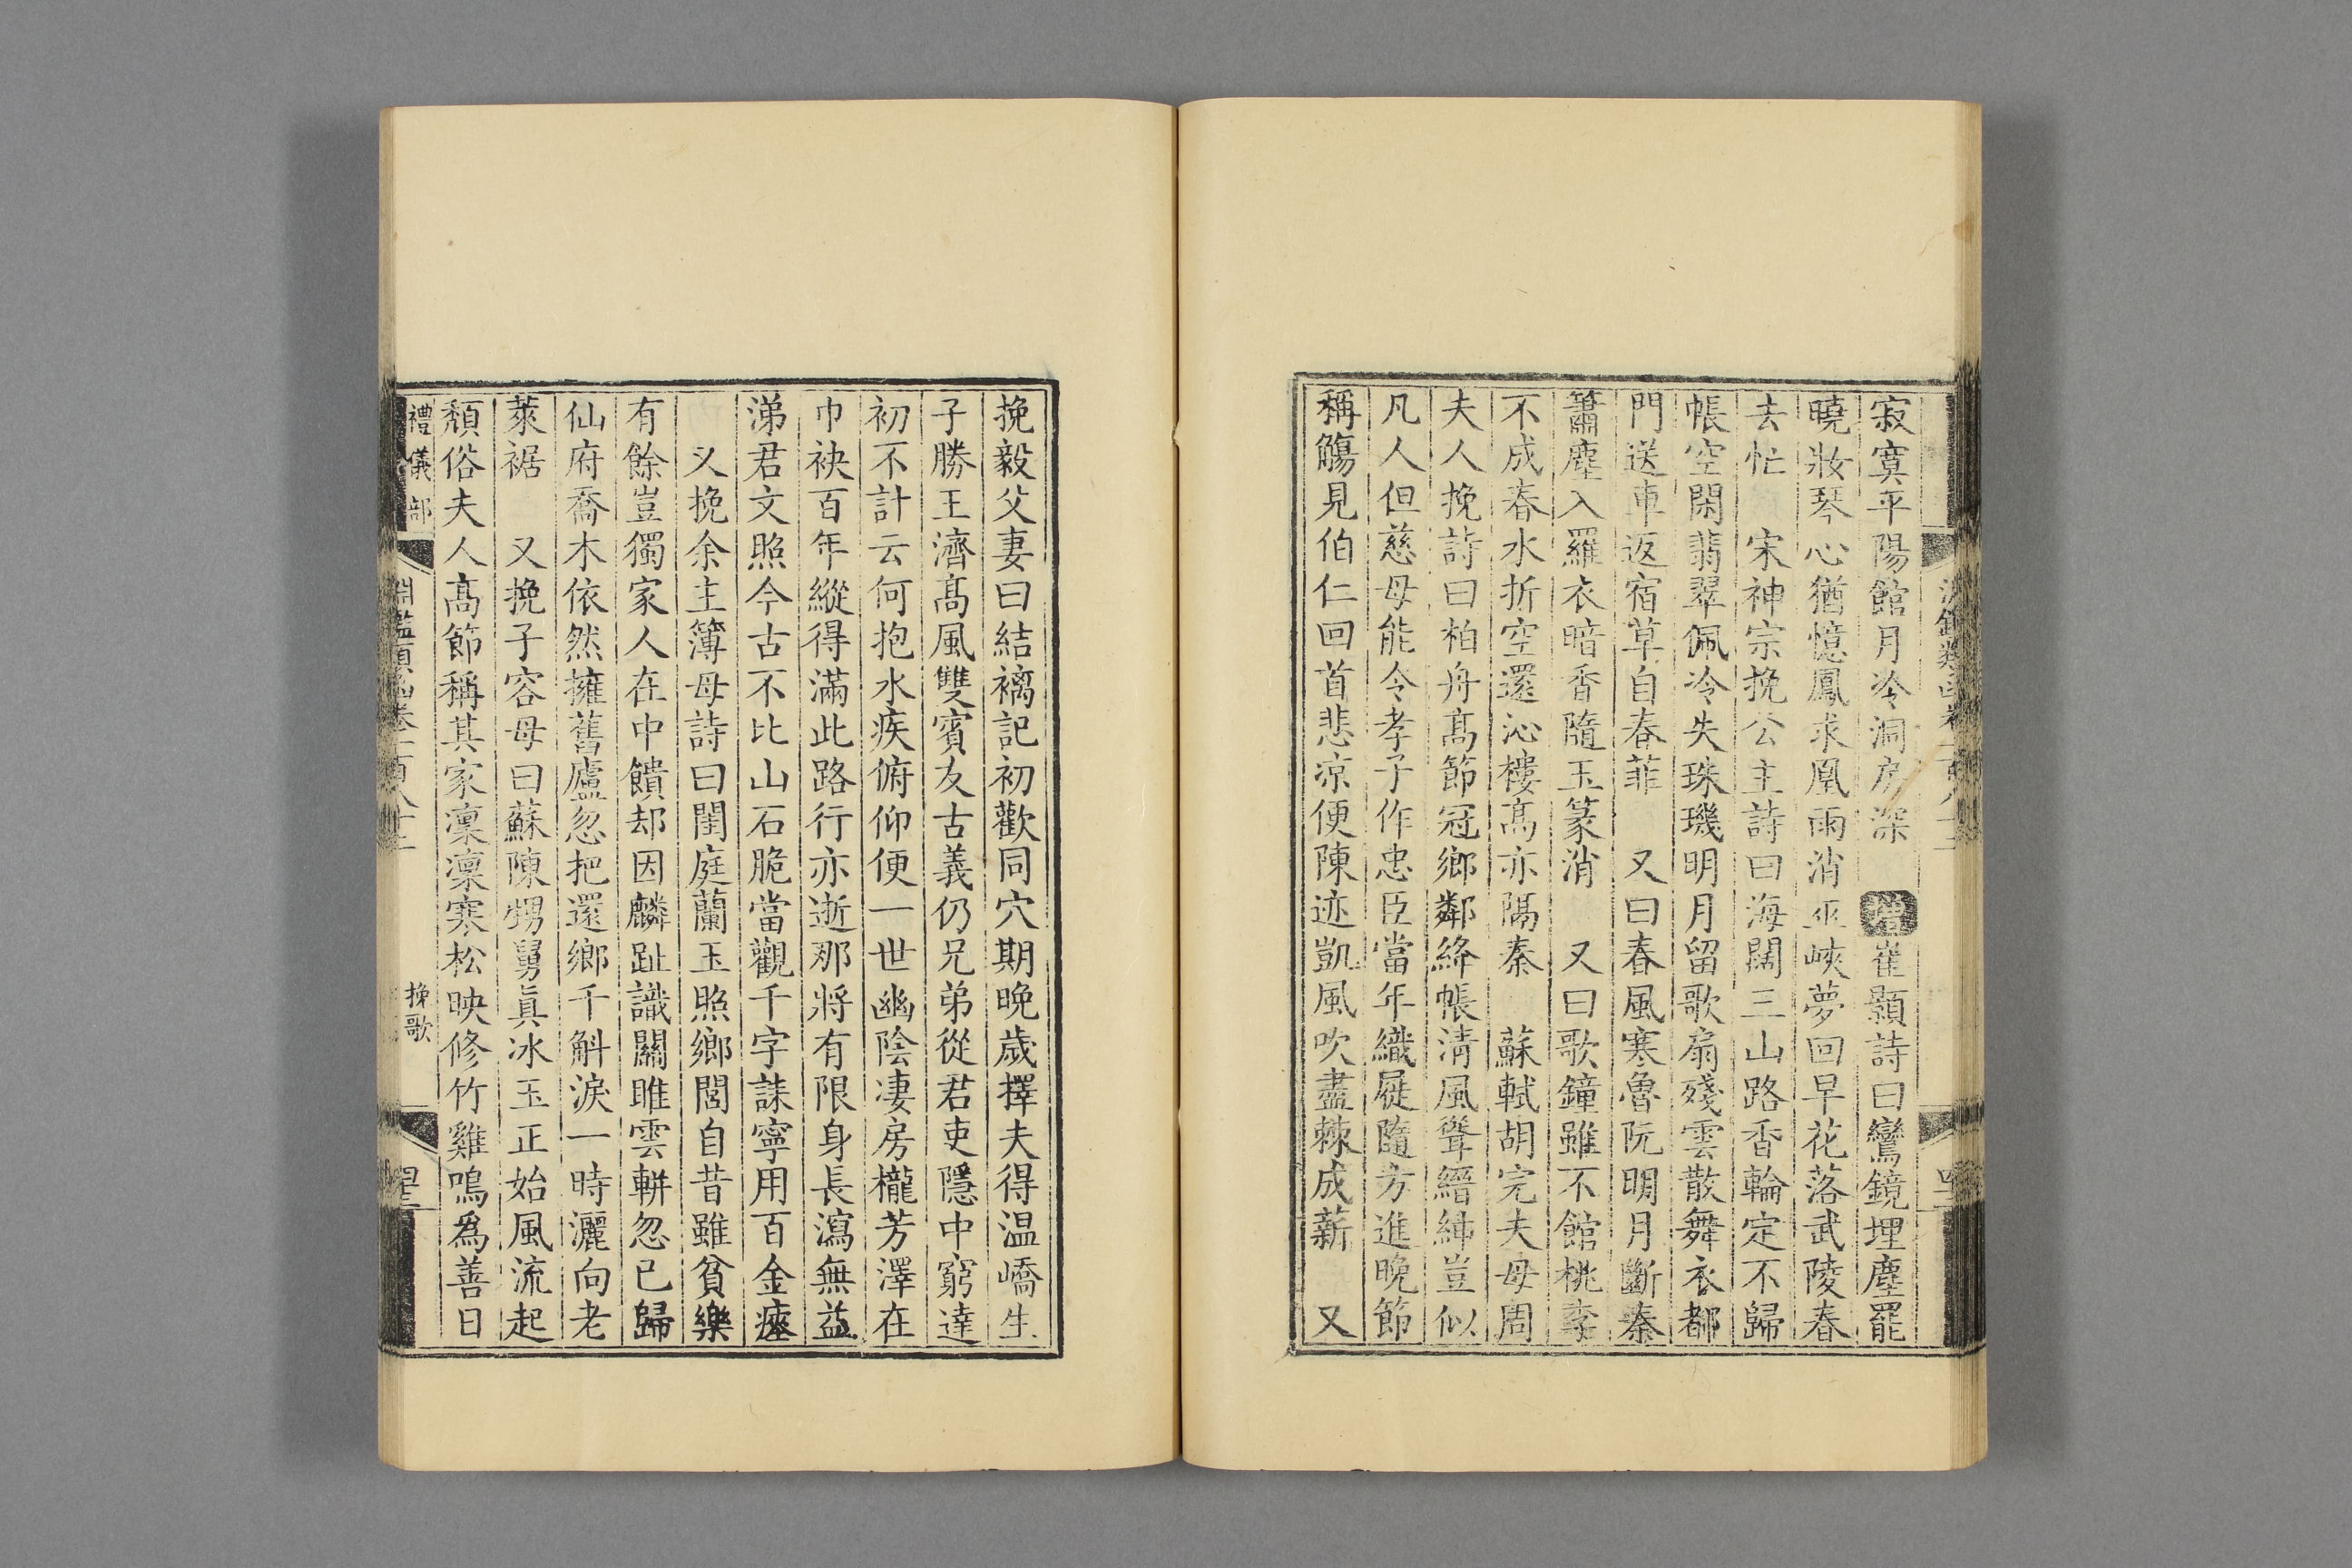 寂寞平陽館月冷洞房深 增崔顥詩曰鸞鏡埋塵罷
曉妝琴心猶憶鳳求凰雨消巫峽夢回早花落武陵春
去忙 宋神宗挽公主詩曰海闊三山路香輪定不歸
帳空閑翡翠佩冷失珠璣明月留歌扇殘雲散舞衣都
門送車返宿草自春菲 又曰春風寒魯阮明月斷秦
簫塵入羅衣暗香隨玉篆消 又曰歌鐘雖不館桃李
不成春水折空還沁樓髙亦隔秦 蘇軾胡完夫母周
夫人挽詩曰柏舟髙節冠鄉鄰絳帳淸風聳縉紳豈似
凡人但慈母能令孝子作忠臣當年織屣隨方進晚節
稱觴見伯仁回首悲凉便陳迹凱風吹盡棘成薪 又
挽毅父妻曰結褵記初歡同穴期晚歲擇夫得温嶠生
子勝王濟髙風雙賓友古義仍兄弟從君吏隱中窮達
初不計云何抱水疾俯仰便一世幽陰凄房櫳芳澤在
巾袂百年縱得滿此路行亦逝那將有限身長瀉無益
涕君文照今古不比山石脆當觀千字誄寧用百金瘞
又挽余主簿母詩曰閨庭蘭玉照鄉閭自昔雖貧樂
有餘豈獨家人在中饋却因麟趾識關雎雲軿忽已歸
仙府喬木依然擁舊廬忽把還鄉千斛淚一時灑向老
萊裾 又挽子容母曰蘇陳甥舅眞冰玉正始風流起
頹俗夫人髙節稱其家凜凜寒松映修竹雞鳴爲善日
禮儀部 淵鑑類函卷一百八十二 挽歌